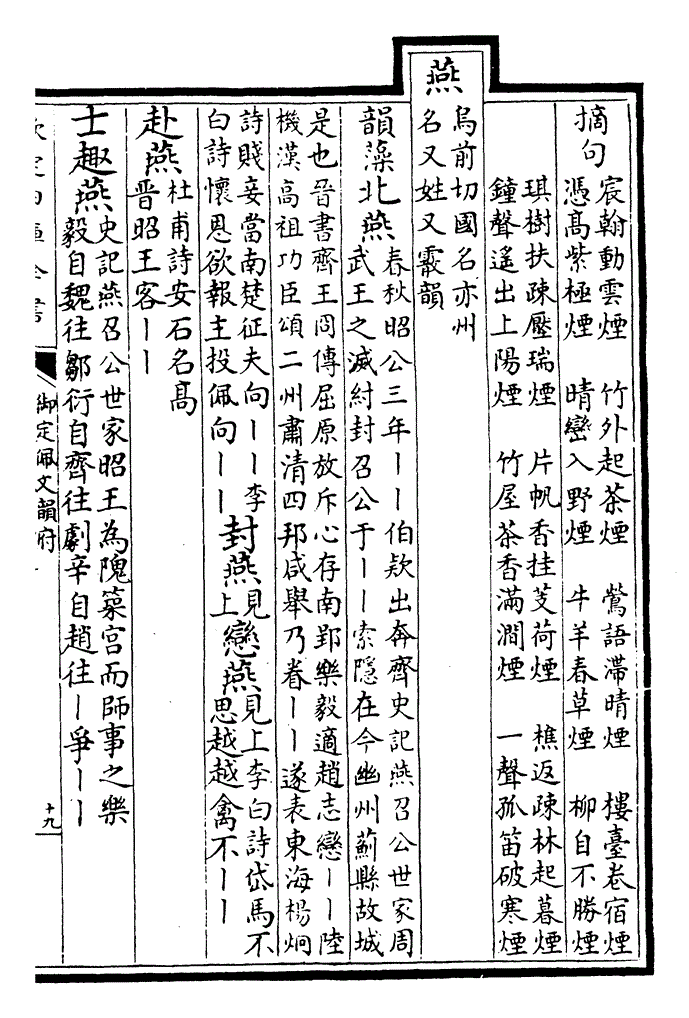 摘句
宸翰動雲煙　竹外起茶煙　鶯語滯晴煙　樓臺卷宿煙
憑高紫極煙　晴巒入野煙　牛羊春草煙　柳自不勝煙
琪樹扶疎壓瑞煙　片帆香挂芰荷煙　樵返疎林起暮煙
鐘聲遙出上陽煙　竹屋茶香滿澗煙　一聲孤笛破寒煙
燕
烏前切國名亦州
名又姓又霰韻
韻藻北燕
春秋昭公三年丨丨伯欵出奔齊史記燕召公世家周
武王之滅紂封召公于丨丨索隱在今幽州薊縣故城
是也晉書齊王冏傳屈原放斥心存南郢樂毅適趙志戀丨丨陸
機漢高祖功臣頌二州肅清四邦咸舉乃眷丨丨遂表東海楊炯
詩賤妾當南楚征夫向丨丨李
白詩懷恩欲報主投佩向丨丨
封燕
見
上
戀燕
見上李白詩岱馬不
思越越禽不丨丨
赴燕
杜甫詩安石名高
晉昭王客丨丨
士趣燕
史記燕召公世家昭王為隗築宮而師事之樂
毅自魏往鄒衍自齊往劇辛自趙往丨爭丨丨
欽定四庫全書
御定佩文韻府
十九